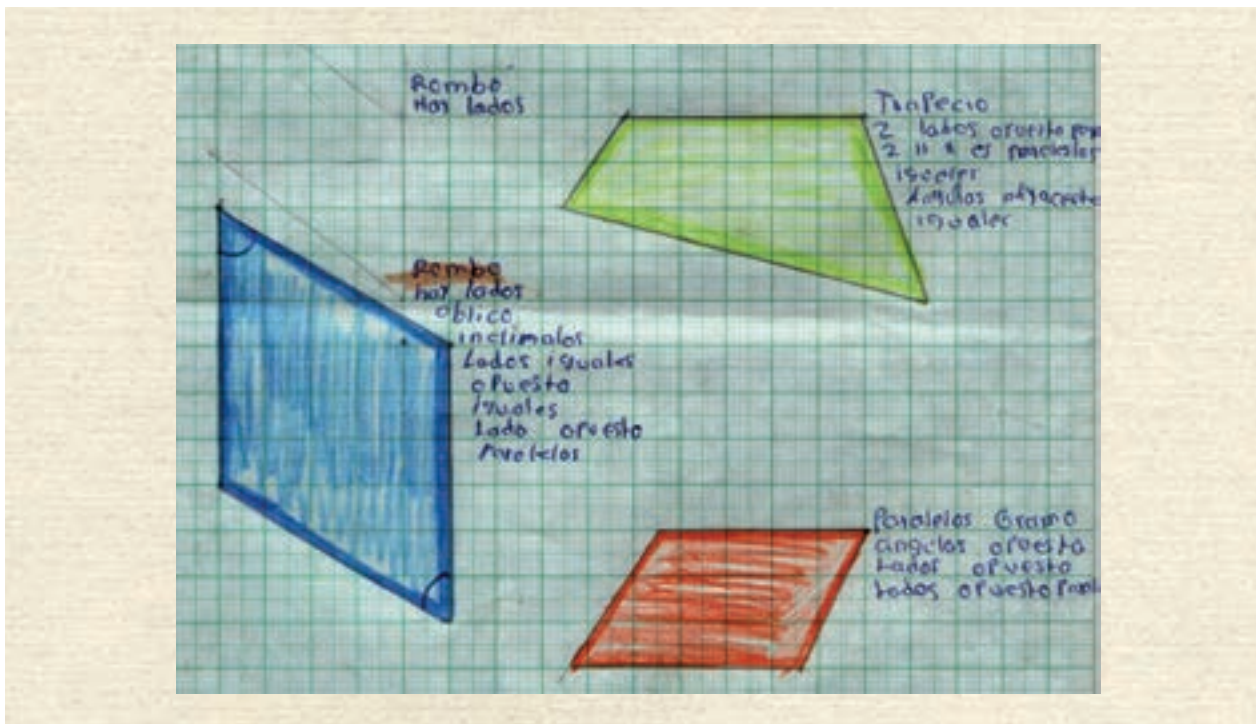 Rombo
Hay lados
Trapecio
2 lados opuesto
2 es
iguales
Angulos adyacente
iguales
Rombo
hay lados
oblico
inclimalos
Lados iguales
opuesto
iguales
Lado opuesto
Paralelos
Paralelos Gramo
angulos opuesto
Lados opuesto
Lados opuesto